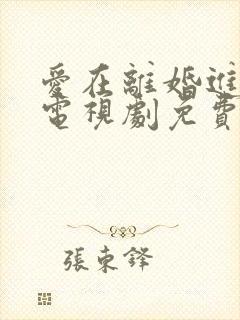 愛在離婚進
電視劇免費
張東鋒